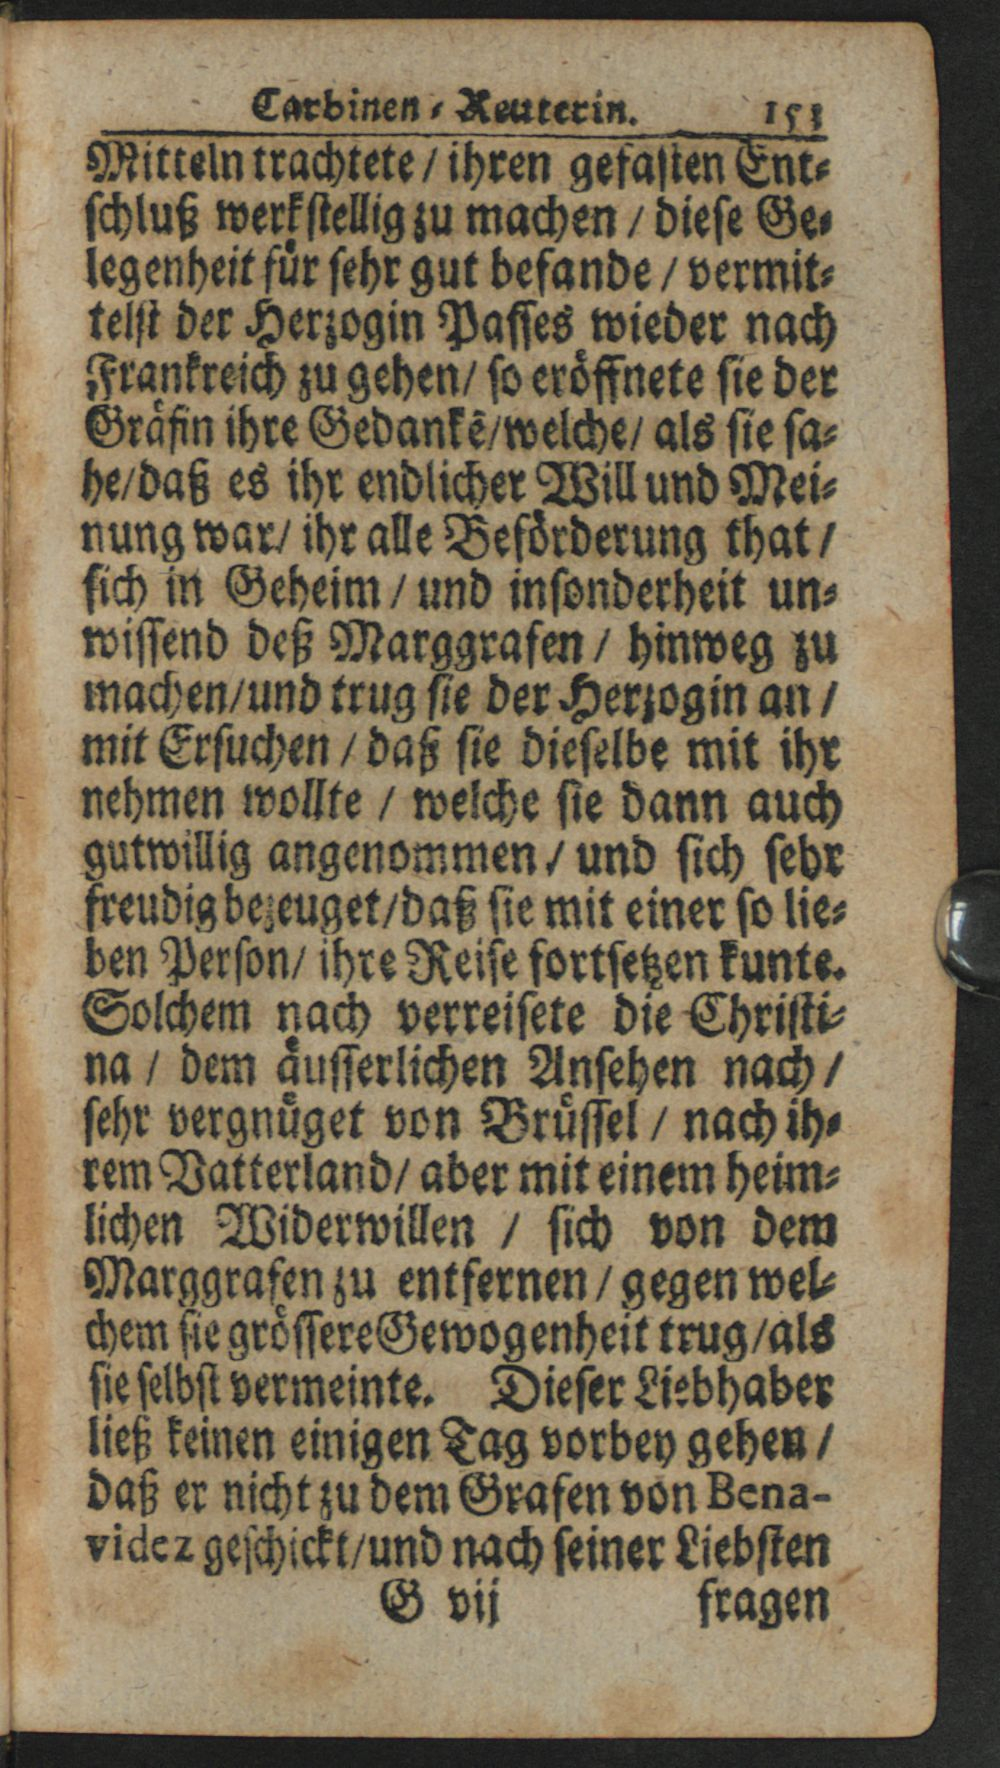 Carbinen⸗Reuterin. 153
Mitteln trachtete / ihren gefaſten Ent⸗
ſchluß werkſtellig zu machen / dieſe Ge⸗
legenheit fuͤr ſehr gut befande / vermit⸗
telſt der Herzogin Paſſes wieder nach
Frankreich zu gehen / ſo eroͤffnete ſie der
Graͤfin ihre Gedankẽ / welche / als ſie ſa⸗
he / daß es ihr endlicher Will und Mei⸗
nung war / ihr alle Befoͤrderung that /
ſich in Geheim / und inſonderheit un⸗
wiſſend deß Marggrafen / hinweg zu
machen / und trug ſie der Herzogin an /
mit Erſuchen / daß ſie dieſelbe mit ihr
nehmen wollte / welche ſie dann auch
gutwillig angenommen / und ſich ſehr
freudig bezeuget / daß ſie mit einer ſo lie⸗
ben Perſon / ihre Reiſe fortſetzen kunte.
Solchem nach verreiſete die Chriſti⸗
na / dem aͤuſſerlichen Anſehen nach /
ſehr vergnuͤget von Bruͤſſel / nach ih⸗
rem Vatterland / aber mit einem heim⸗
lichen Widerwillen / ſich von dem
Marggrafen zu entfernen / gegen wel⸗
chem ſie groͤſſere Gewogenheit trug / als
ſie ſelbſt vermeinte. Dieſer Liebhaber
ließ keinen einigen Tag vorbey gehen /
daß er nicht zu dem Grafen von Bena-
videz geſchickt / und nach ſeiner Liebſten
G vij fragen